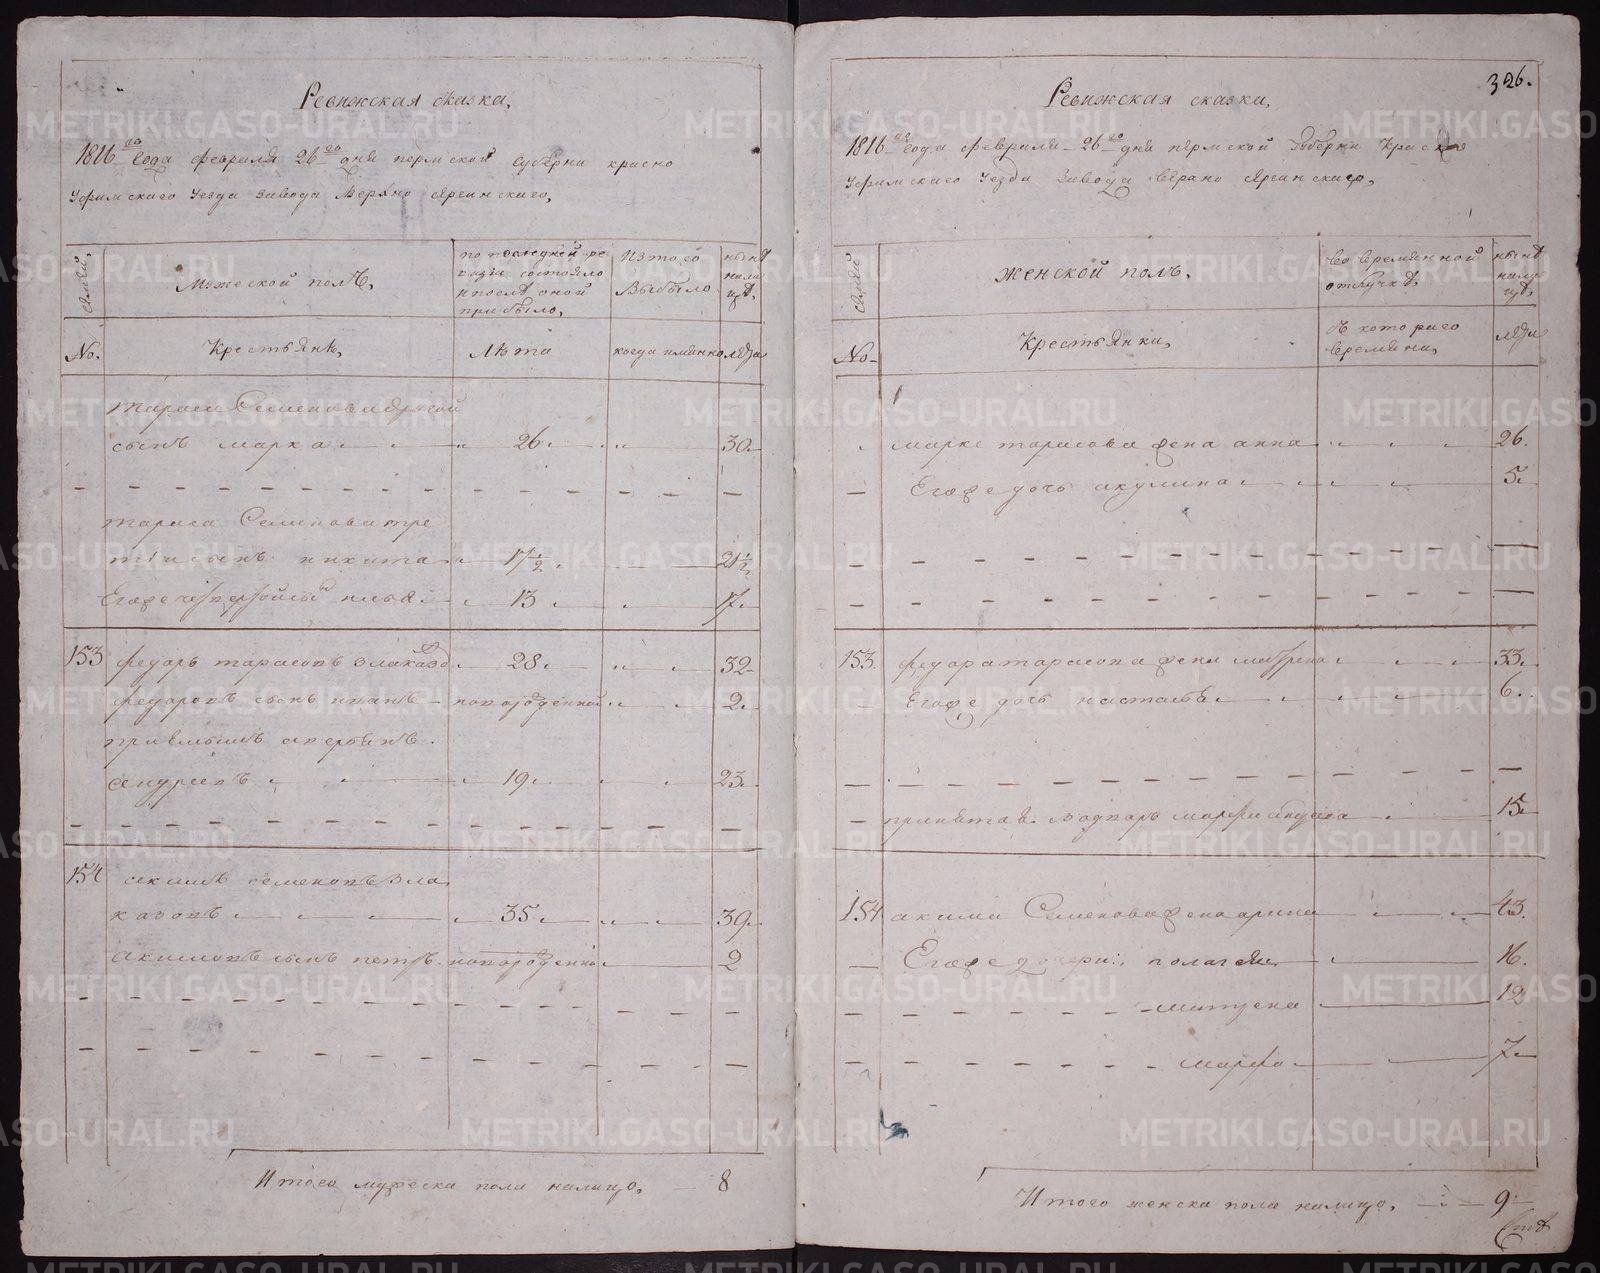 Ревижская сказка,
1816 го года февраля 26 го дня пермской губерни красно
Уфимскаго Уезда завода Верхно Аргинскаго,
семей,
Мужеской полъ,
по последней ре
визи состояло
и после оной
прибыло,
Изтого
выбыло
ныне
нали
це,
No.
Крестьяне,
Лета
когда имянно
лета
Тараса Семенова другой
сынъ марка 26 30
Тараса Семенова тре
тий сынъ никита 17 1/2 21 1/2
Егоже четвертой илья 13 17
153 федоръ тарасовъ злаказо 28 32
федоровъ сынъ иванъ новорожденной 2
19 23
154 акимъ семеновъ зла
казовъ 35 39
акимовъ сынъ петръ новорожденной 2
Итого мужеска пола налицо, 8
326.
Ревижская сказка,
1816 го года февраля 26 го дня пермской губерни Красно
Уфимскаго Уезда завода верхно Аргинскаго,
семей
женской полъ,
во времянной
отлучке,
ныне
нали
це,
No
Крестьянки,
съ котораго
времяни,
лета
марка тарасова жена анна 26.
Егоже дочь акулина 5
153. федора тарасова жена матрена 33
Егоже дочь настасья 6.
15
154 акима Семенова жена арина 43.
Егоже дочери: пелагея 16.
матрена 12
марфа 7
Итого женска пола налицо, 9
METRIKI.GASO-URAL.RU